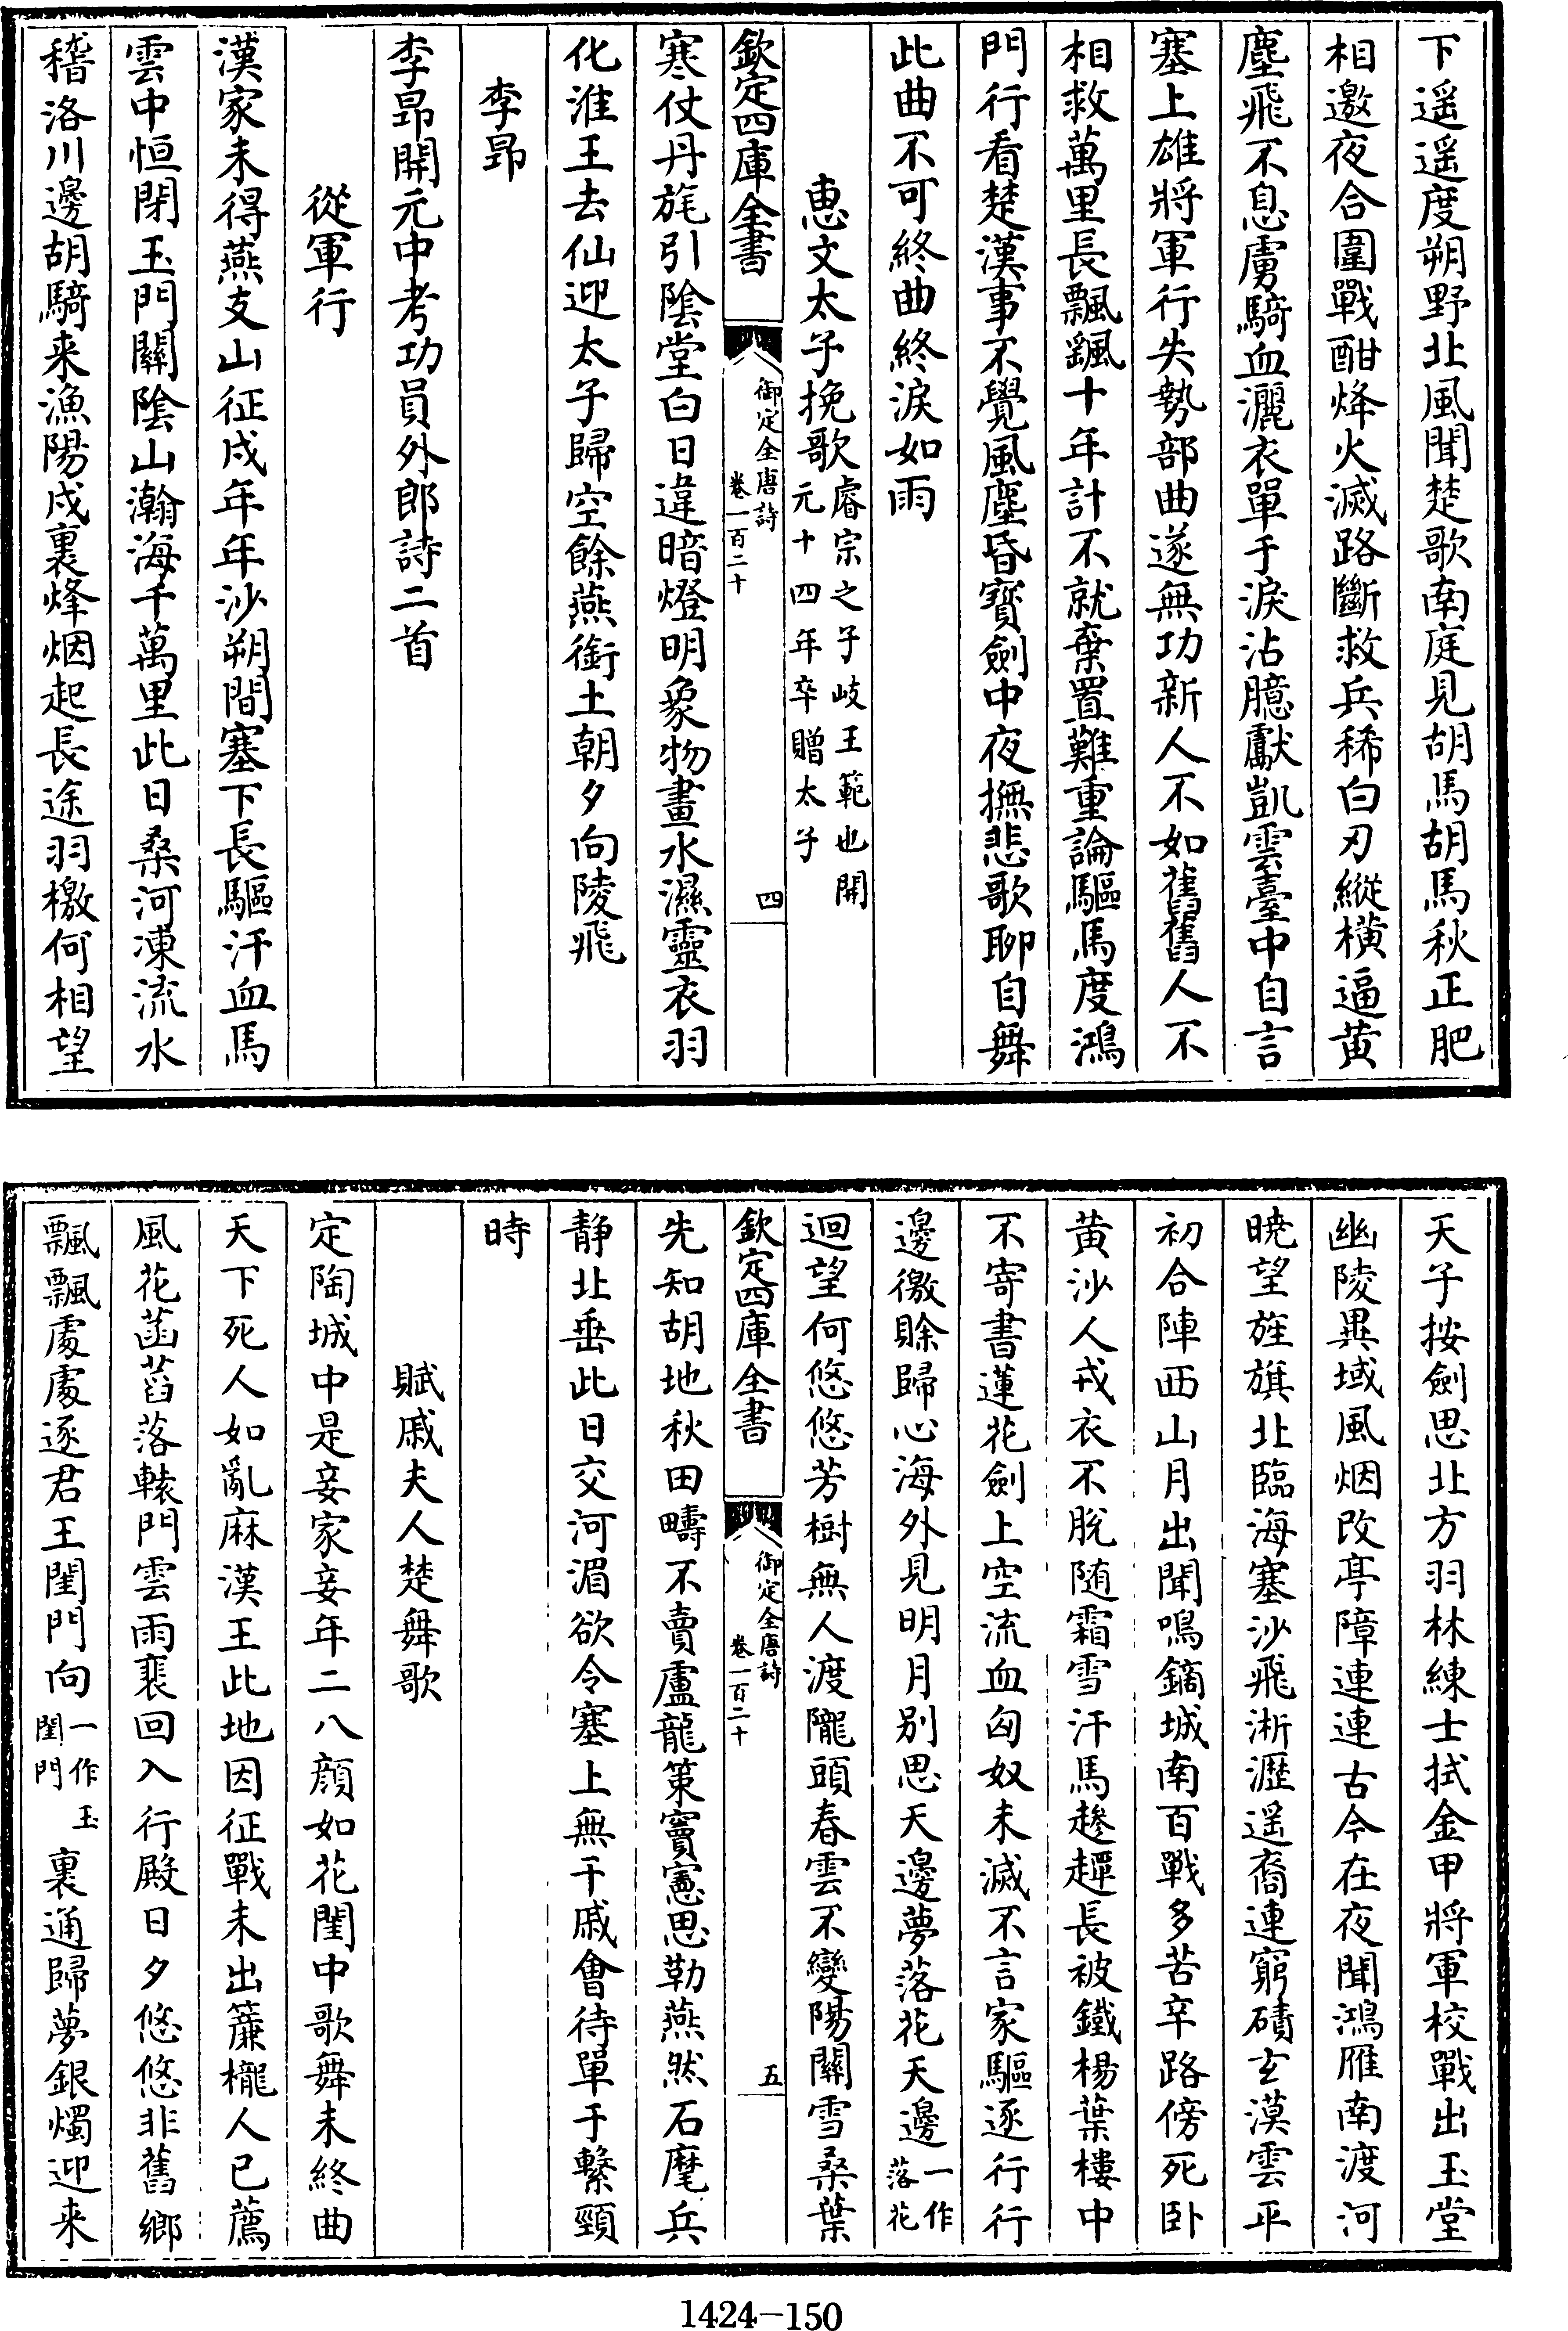 下遥遥度朔野北風聞楚歌南庭見胡馬胡馬秋正肥
相邀夜合圍戰酣烽火滅路斷救兵稀白刃縱橫逼黃
塵飛不息虜騎血灑衣單于淚沾臆獻凱雲臺中自言
塞上雄將軍行失勢部曲遂無功新人不如舊舊人不
相救萬里長飄颻十年計不就棄置難重論驅馬度鴻
門行看楚漢事不覺風塵昏寶劍中夜撫悲歌聊自舞
此曲不可終曲終淚如雨
惠文太子挽歌睿宗之子岐王範也開
元十四年卒贈太子
欽定四庫全書
御定全唐詩
卷一百二十
四
寒仗丹旄引隂堂白日違暗燈明象物畫水濕靈衣羽
化淮王去仙迎太子歸空餘燕銜土朝夕向陵飛
李昻
李昻開元中考功員外郎詩二首
從軍行
漢家未得燕支山征戍年年沙朔間塞下長驅汗血馬
雲中恒閉玉門關隂山瀚海千萬里此日桑河凍流水
稽洛川邊胡騎来漁陽戍裏烽烟起長途羽檄何相望
天子按劍思北方羽林練士拭金甲將軍校戰出玉堂
幽陵異域風烟改亭障連連古今在夜聞鴻雁南渡河
曉望旌旗北臨海塞沙飛淅瀝遥裔連窮磧玄漠雲平
初合陣西山月出聞鳴鏑城南百戰多苦辛路傍死卧
黃沙人戎衣不脫随霜雪汗馬趁趯長被鐵楊葉樓中
不寄書蓮花劍上空流血匈奴未滅不言家驅逐行行
邊徼賒歸心海外見明月别思天邊夢落花天邊一作
落花
迴望何悠悠芳樹無人渡隴頭春雲不變陽關雪桑葉
欽定四庫全書
御定全唐詩
卷一百二十
五
先知胡地秋田疇不賣盧龍策竇憲思勒燕然石麾兵
静北垂此日交河湄欲令塞上無干戚會待單于繫頸
時
賦戚夫人楚舞歌
定陶城中是妾家妾年二八顔如花閨中歌舞未終曲
天下死人如亂麻漢王此地因征戰未出簾櫳人已薦
風花菡萏落轅門雲雨裴回入行殿日夕悠悠非舊鄉
飄飄處處逐君王閨門向一作玉
閨門裏通歸夢銀燭迎来
1424—150